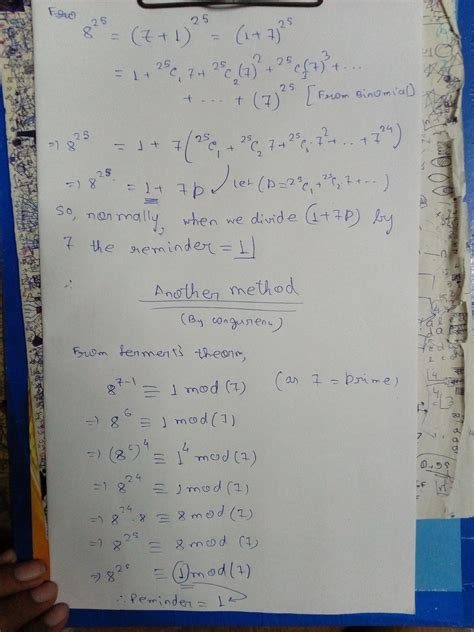 8^25 = (7+1)^25 = (1+7)^25
= 1 + ^25C_1 7 + ^25C_2 (7)^2 + ^25C_3 (7)^3 + ...
+ ... + (7)^25 [From Binomial]
=> 8^25 = 1 + 7(^25C_1 + ^25C_2 7 + ^25C_3 7^2 + ... + 7^24)
=> 8^25 = 1 + 7P let (P = ^25C_1 + ^25C_2 7 + ...)
So, normally, when we divide (1+7P) by
7 the reminder = 1
∴ Another method
(By congurence)
From fermer's theorm,
8^7-1 ≡ 1 mod (7) (as 7 = Prime)
=> 8^6 ≡ 1 mod (7)
=> (8^6)^4 ≡ 1^4 mod (7)
=> 8^24 ≡ 1 mod (7)
=> 8^24 . 8 ≡ 8 mod (7)
=> 8^25 ≡ 8 mod (7)
=> 8^25 ≡ 1 mod (7)
∴ Reminder = 1